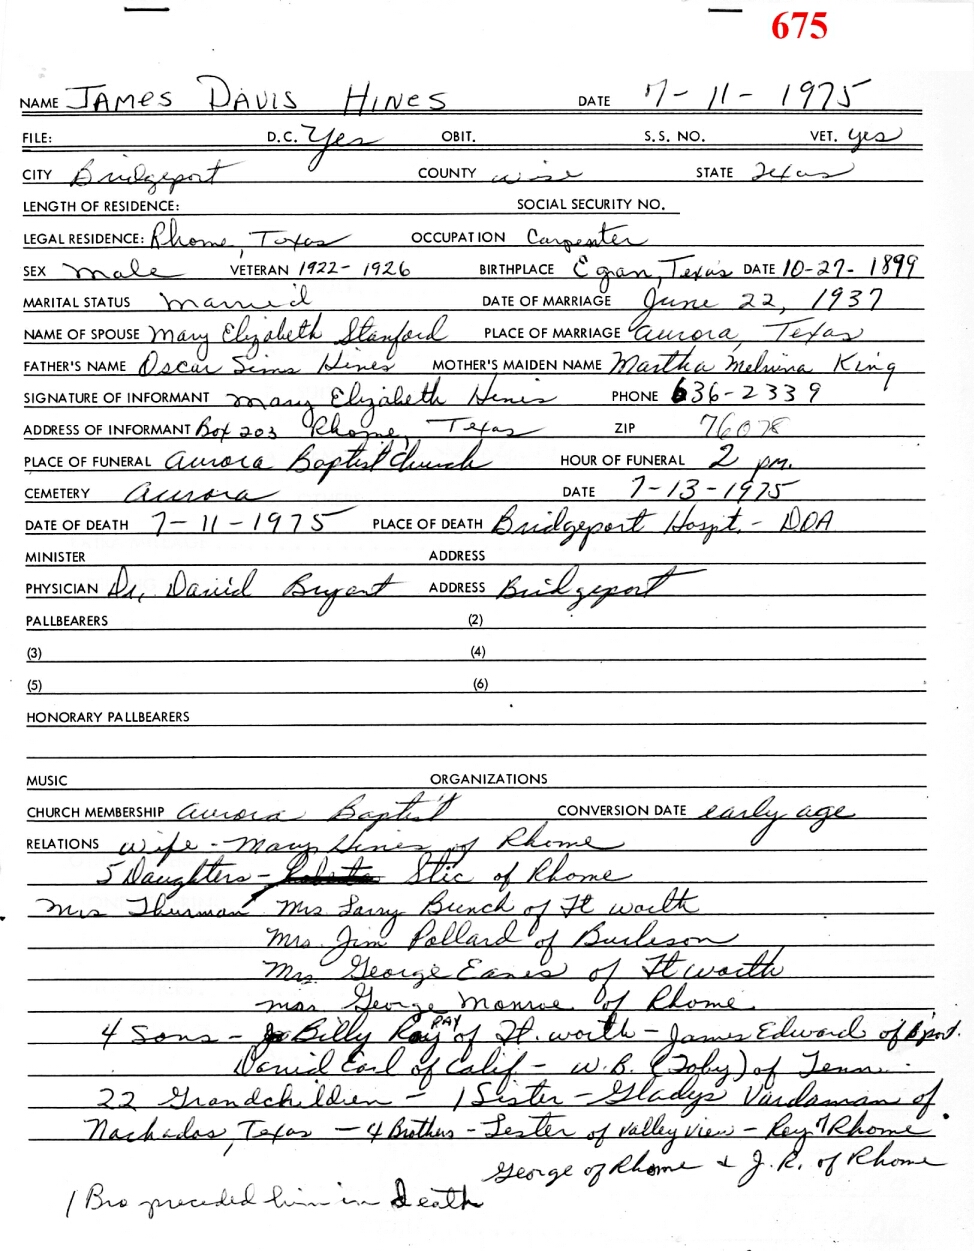 675
NAME JAMES DAVIS HINES DATE 7-11-1975
FILE: D.C. Yes OBIT. S.S. NO. VET. yes
CITY Bridgeport COUNTY wise STATE Texas
LENGTH OF RESIDENCE: SOCIAL SECURITY NO.
LEGAL RESIDENCE: Rhome, Texas OCCUPATION Carpenter
SEX male VETERAN 1922-1926 BIRTHPLACE Egan, Texas DATE 10-27-1899
MARITAL STATUS married DATE OF MARRIAGE June 22, 1937
NAME OF SPOUSE Mary Elizabeth Stanford PLACE OF MARRIAGE Aurora, Texas
FATHER'S NAME Oscar Sims Hines MOTHER'S MAIDEN NAME Martha Melvina King
SIGNATURE OF INFORMANT Mary Elizabeth Hines PHONE 636-2339
ADDRESS OF INFORMANT Box 203 Rhome, Texas ZIP 76078
PLACE OF FUNERAL Aurora Baptist Church HOUR OF FUNERAL 2 pm.
CEMETERY Aurora DATE 7-13-1975
DATE OF DEATH 7-11-1975 PLACE OF DEATH Bridgeport Hospt. - DOA
MINISTER ADDRESS
PHYSICIAN Dr. David Bryant ADDRESS Bridgeport
PALLBEARERS (2)
(3) (4)
(5) (6)
HONORARY PALLBEARERS
MUSIC ORGANIZATIONS
CHURCH MEMBERSHIP Aurora Baptist CONVERSION DATE early age
RELATIONS wife - Mary Hines of Rhome
5 Daughters - Stic of Rhome
Mrs Thurman Mrs. Larry Bunch of Ft worth
Mrs. Jim Pollard of Burleson
Mrs George Eanes of Ft worth
Mrs George Monroe of Rhome
4 Sons - Billy Ray RAY of Ft. worth - James Edward of Bport.
David Earl of Calif - W.B. (Toby) of Tenn.
22 Grandchildren - 1 Sister - Gladys Vardaman of
Nachados, Texas - 4 Brothers - Lester of valley view - Roy of Rhome
George of Rhome & J.R. of Rhome
1 Bro preceded him in Death